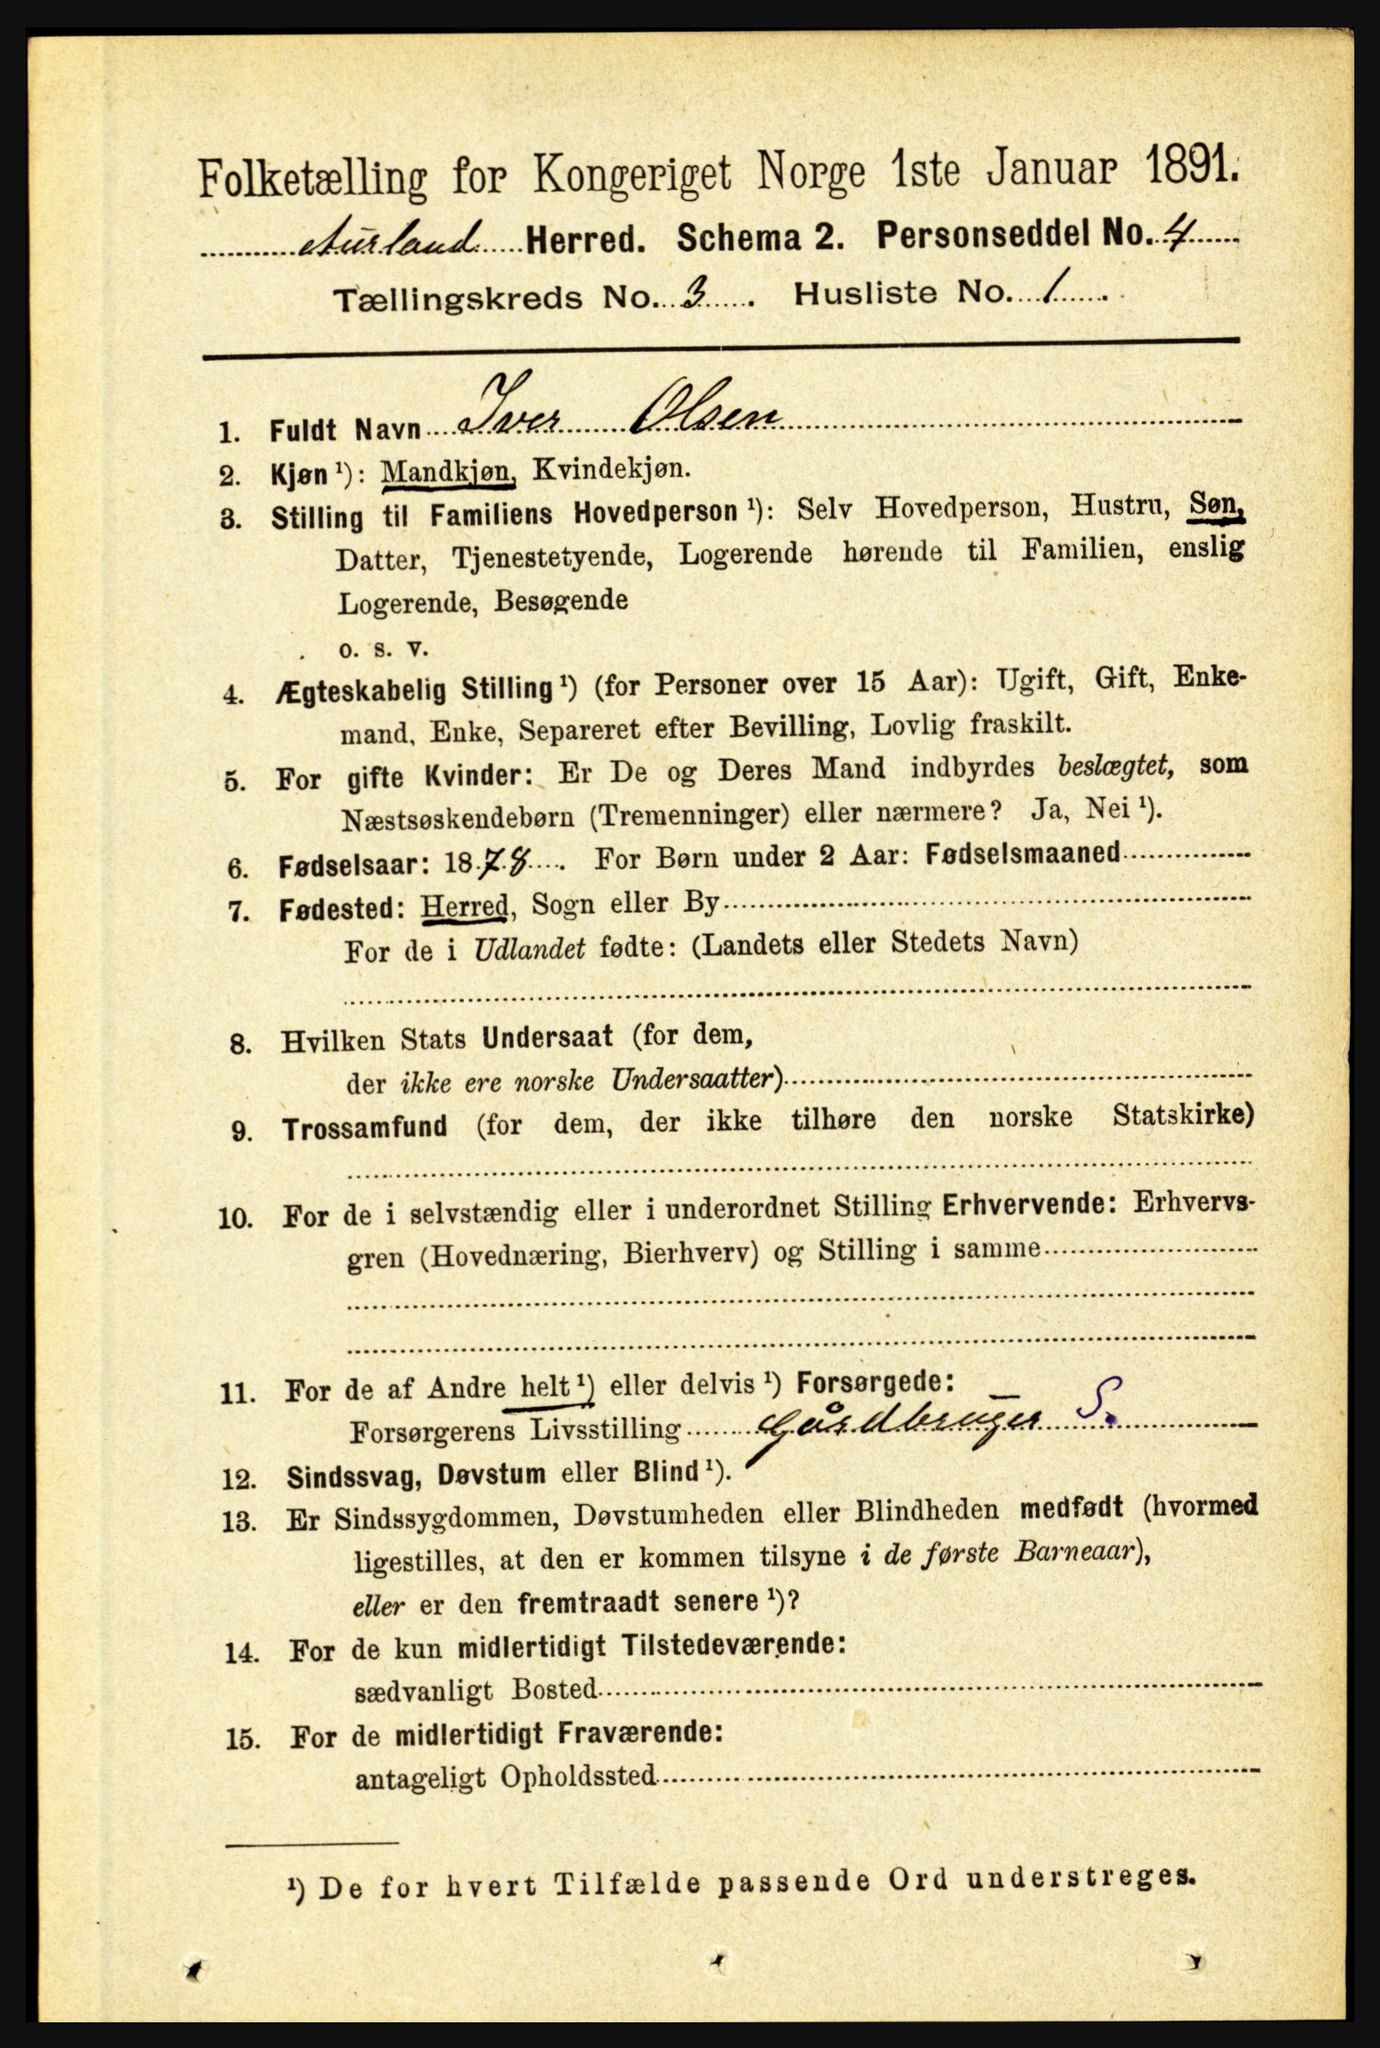 Folketælling for Kongeriget Norge 1ste Januar 1891.
Aurland Herred. Schema 2. Personseddel No. 4
Tællingskreds No. 3. Husliste No. 1.
1. Fuldt Navn Iver Olsen
2. Kjøn ¹): Mandkjøn, Kvindekjøn.
3. Stilling til Familiens Hovedperson ¹): Selv Hovedperson, Hustru, Søn,
Datter, Tjenestetyende, Logerende hørende til Familien, enslig
Logerende, Besøgende
o. s. v.
4. Ægteskabelig Stilling ¹) (for Personer over 15 Aar): Ugift, Gift, Enke-
mand, Enke, Separeret efter Bevilling, Lovlig fraskilt.
5. For gifte Kvinder: Er De og Deres Mand indbyrdes beslægtet, som
Næstsøskendebørn (Tremenninger) eller nærmere? Ja, Nei ¹).
6. Fødselsaar: 1878. For Børn under 2 Aar: Fødselsmaaned
7. Fødested: Herred, Sogn eller By
For de i Udlandet fødte: (Landets eller Stedets Navn)
8. Hvilken Stats Undersaat (for dem,
der ikke ere norske Undersaatter)
9. Trossamfund (for dem, der ikke tilhøre den norske Statskirke)
10. For de i selvstændig eller i underordnet Stilling Erhvervende: Erhvervs-
gren (Hovednæring, Bierhverv) og Stilling i samme
11. For de af Andre helt ¹) eller delvis ¹) Forsørgede:
Forsørgerens Livsstilling Gårdbruger S.
12. Sindssvag, Døvstum eller Blind ¹).
13. Er Sindssygdommen, Døvstumheden eller Blindheden medfødt (hvormed
ligestilles, at den er kommen tilsyne i de første Barneaar),
eller er den fremtraadt senere ¹)?
14. For de kun midlertidigt Tilstedeværende:
sædvanligt Bosted
15. For de midlertidigt Fraværende:
antageligt Opholdssted
¹) De for hvert Tilfælde passende Ord understreges.